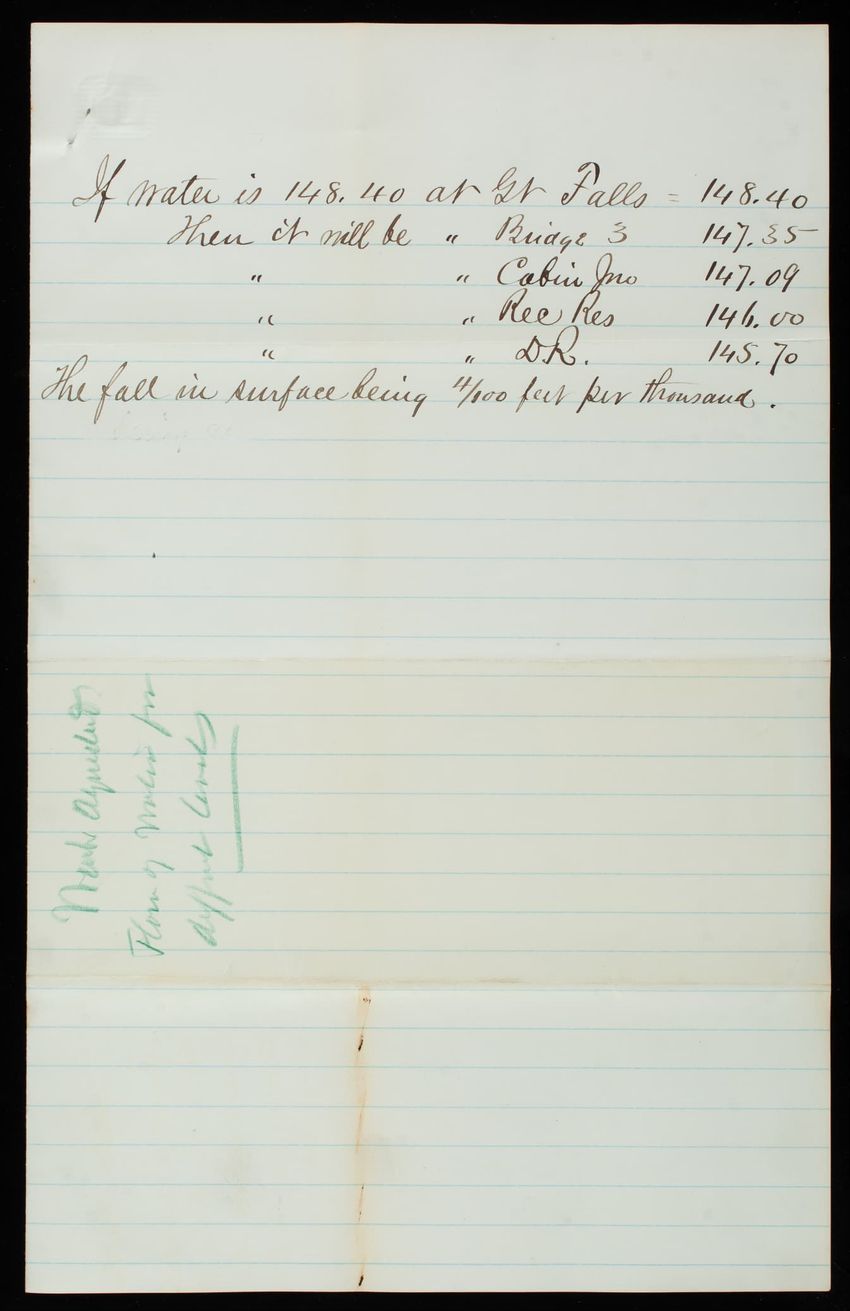 If water is 148.40 at Gt Falls = 148.40
Then it will be " Bridge 3 147.35
" " Cabin Jno 147.09
" " Rec Res 146.00
" " D.R. 145.70
The fall in surface being 4/100 feet per thousand.
Wash Aqueduct
Flow of Water for
diffnt levels